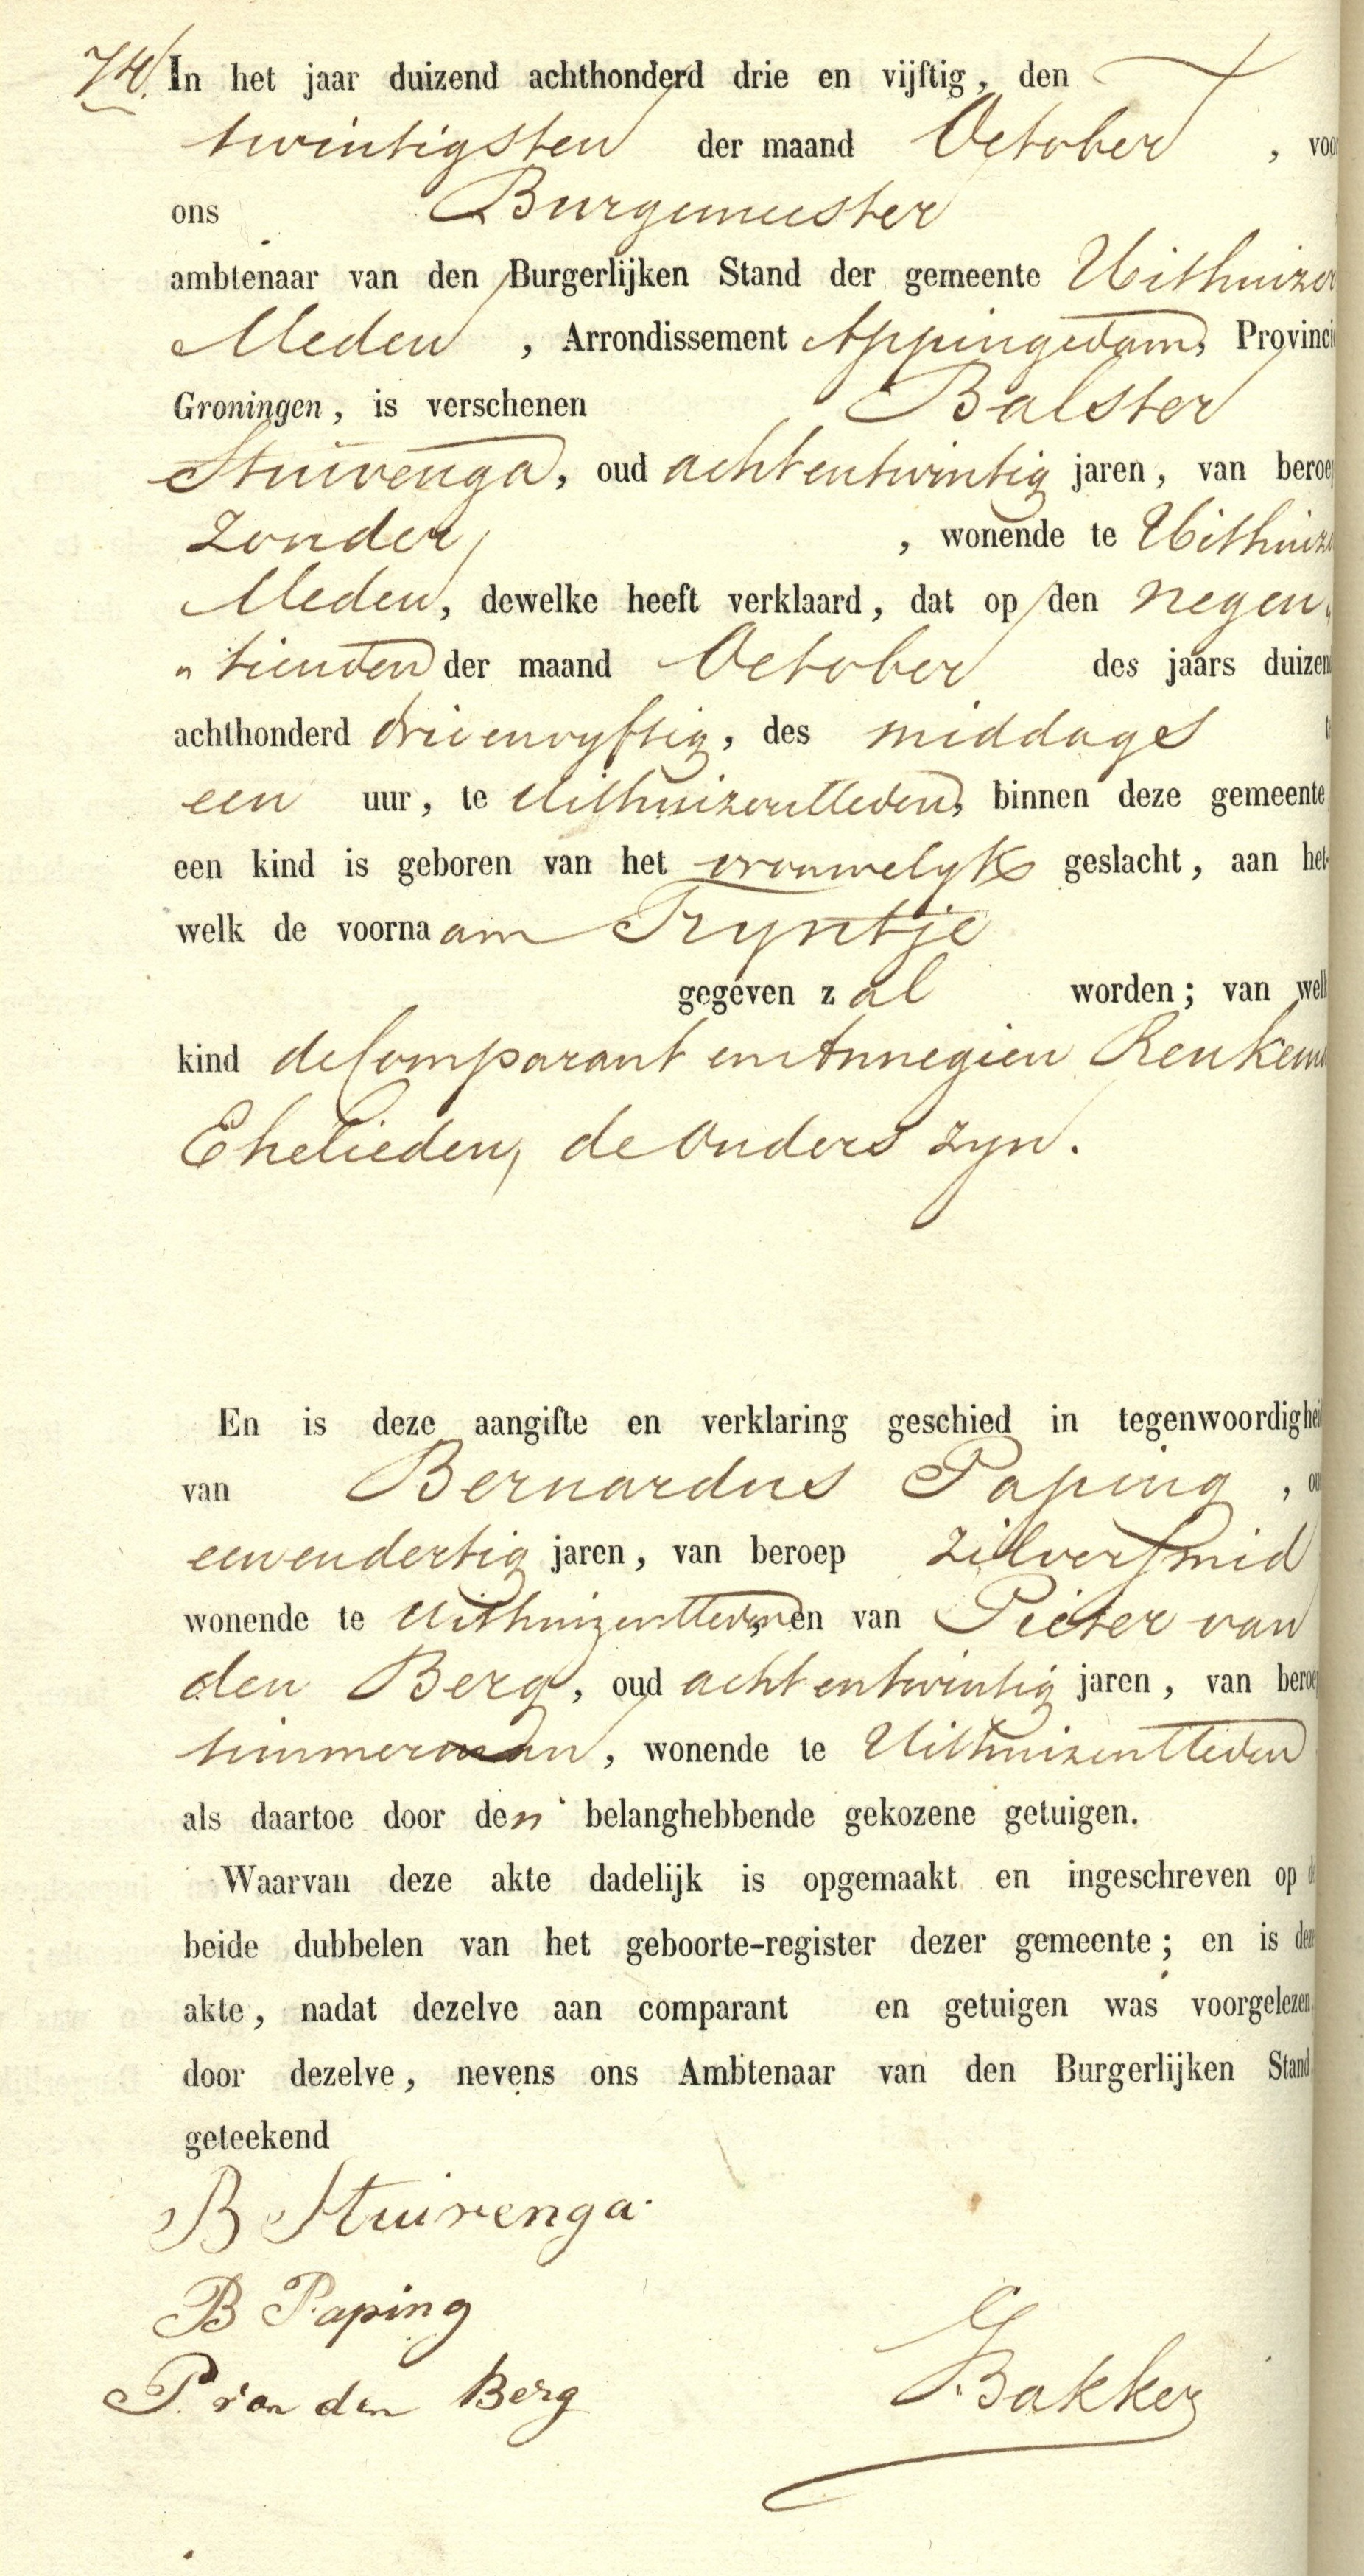 74. In het jaar duizend achthonderd drie en vijftig, den
twintigsten der maand October, voor
ons Burgemeester
ambtenaar van den Burgerlijken Stand der gemeente Uithuizer
Meden, Arrondissement Appingedam, Provinci
Groningen, is verschenen Balster
Stuivenga, oud achtentwintig jaren, van beroep
zonder, wonende te Uithuize
Meden, dewelke heeft verklaard, dat op den negen„
„tienden der maand October des jaars duizend
achthonderd drieenvyftig, des middags te
een uur, te UithuizerMeden, binnen deze gemeente
een kind is geboren van het vrouwelyk geslacht, aan het-
welk de voornaam Tryntje
gegeven zal worden; van welk
kind de Comparant en Annegien Renkema
Ehelieden, de Ouders zyn.
En is deze aangifte en verklaring geschied in tegenwoordighei
van Bernardus Paping, ou
eenendertig jaren, van beroep zilversmid
wonende te UithuizerMeden, en van Pieter van
den Berg, oud achtentwintig jaren, van beroep
timmerman, wonende te UithuizerMeden
als daartoe door den belanghebbende gekozene getuigen.
Waarvan deze akte dadelijk is opgemaakt en ingeschreven op d
beide dubbelen van het geboorte-register dezer gemeente; en is dez
akte, nadat dezelve aan comparant en getuigen was voorgelezen,
door dezelve, nevens ons Ambtenaar van den Burgerlijken Stand
geteekend
B Stuivenga
B Paping
P. van den Berg
Bakker